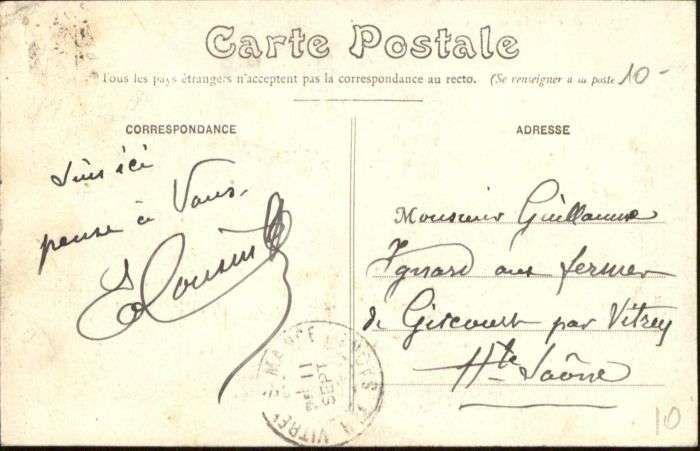 Carte Postale
Tous les pays étrangers n'acceptent pas la correspondance au recto. (Se renseigner à la poste
10-
CORRESPONDANCE
ADRESSE
Suis ici
pense à Vous.
E Cousin
Monsieur Guillaume
Ignard aux fermes
de Giscourt par Vitrey
Hte Saône
SEPT
11
VITREY
10